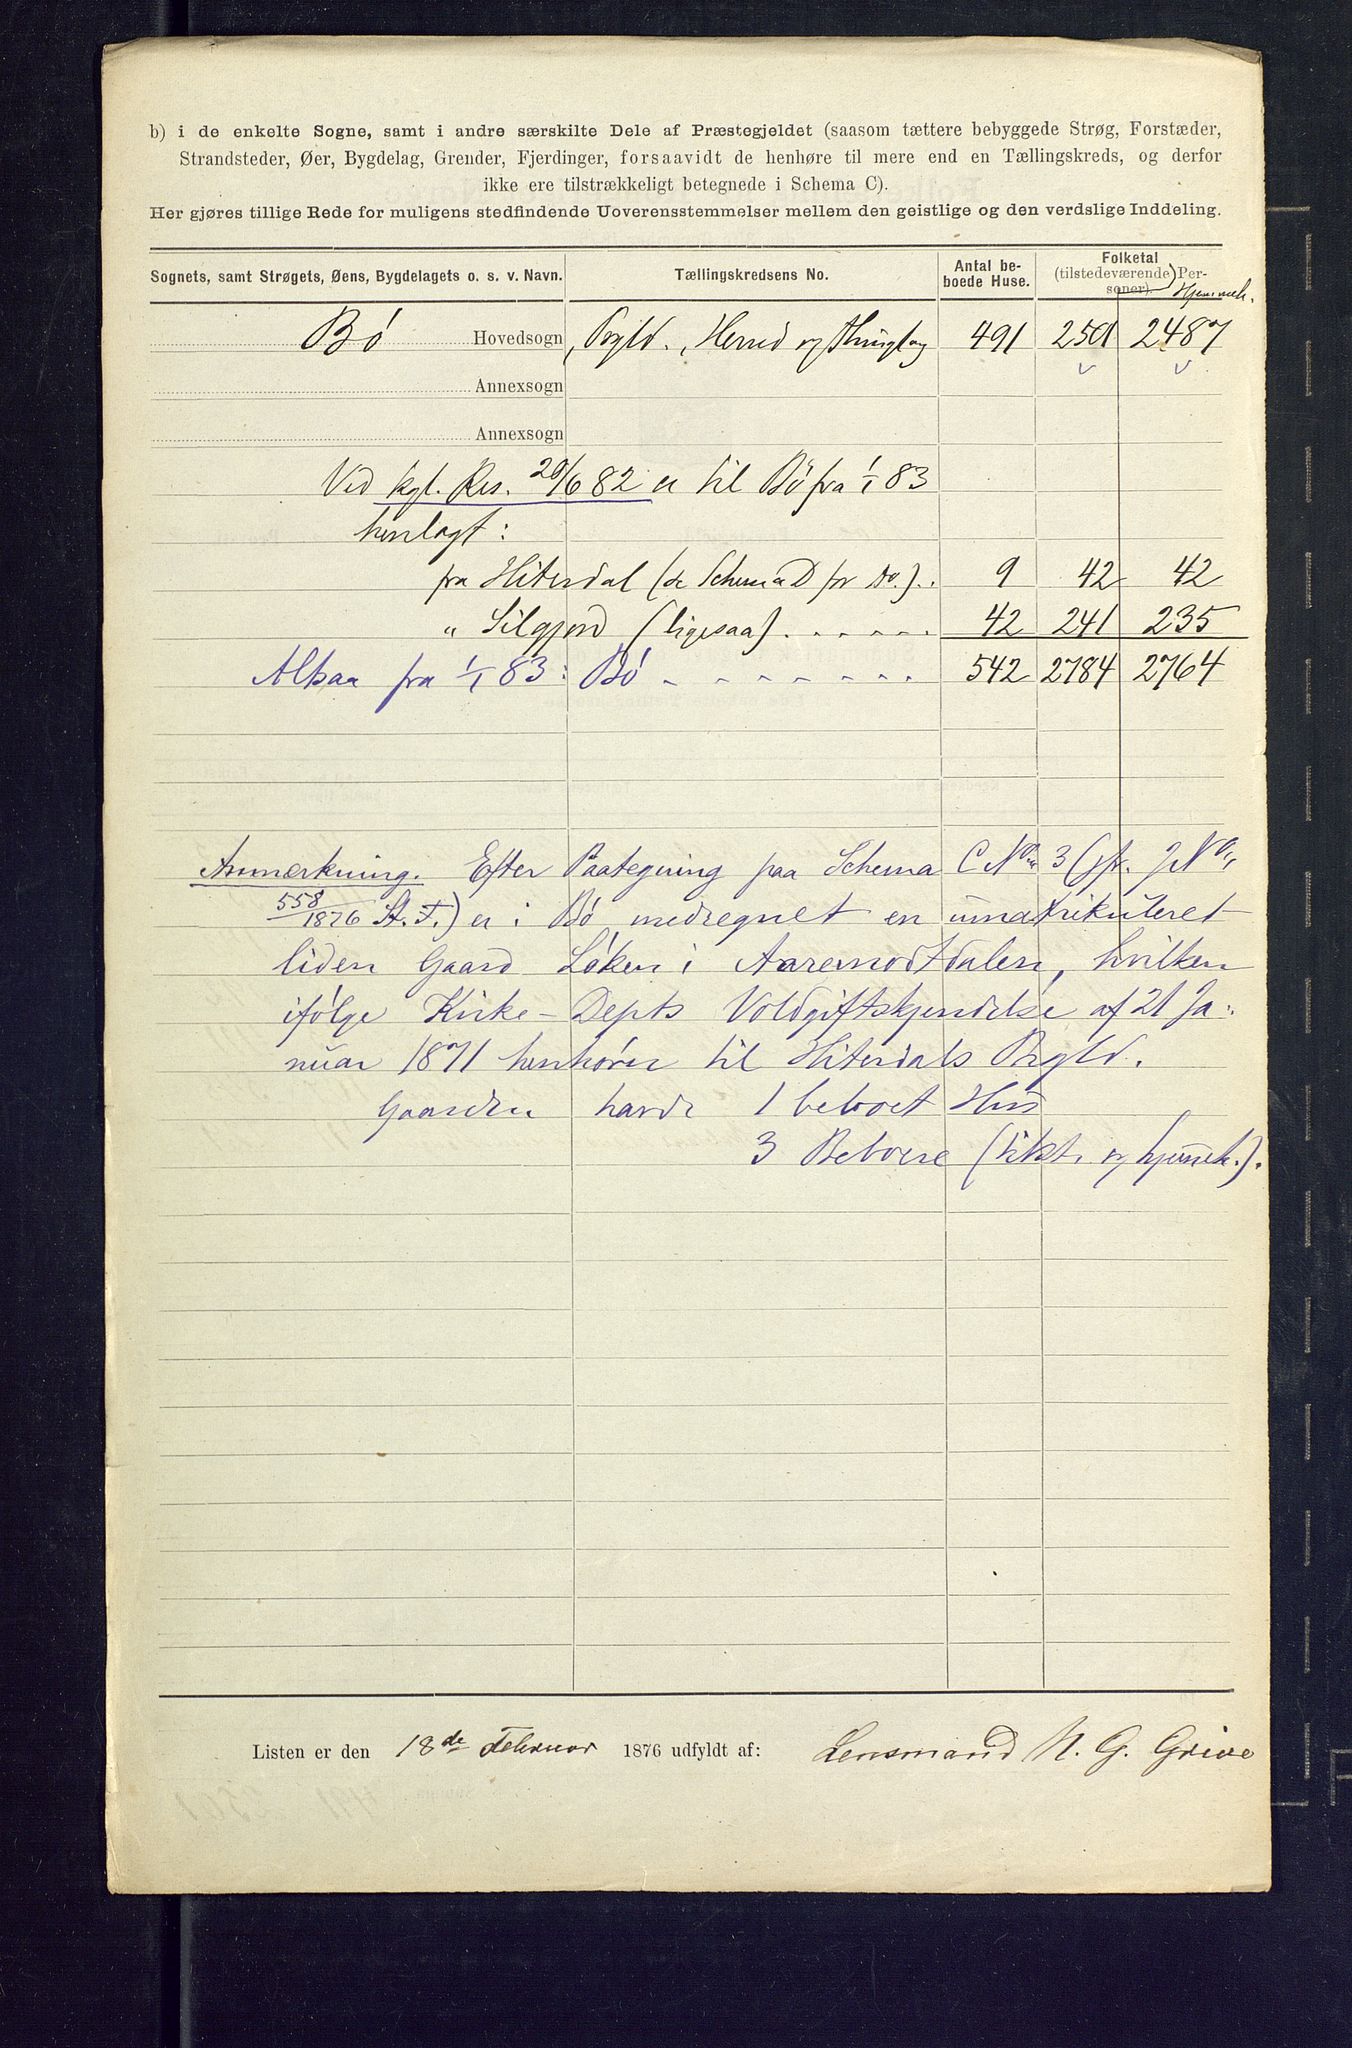 b) i de enkelte Sogne, samt i andre særskilte Dele af Præstegjeldet (saasom tættere bebyggede Strøg, Forstæder,
Strandsteder, Øer, Bygdelag, Grender, Fjerdinger, forsaavidt de henhøre til mere end en Tællingskreds, og derfor
ikke ere tilstrækkeligt betegnede i Schema C).
Her gjøres tillige Rede for muligens stedfindende Uoverensstemmelser mellem den geistlige og den verdslige Inddeling.
Sognets, samt Strøgets, Øens, Bygdelagets o. s. v. Navn. Tællingskredsens No. Antal be-boede Huse. Folketal (tilstedeværende Per-soner). Hjemmeh.
Bø Hovedsogn, Prgld., Herred og Thinglag 491 2501 2487
Annexsogn
Annexsogn
Ved kgl. Res. 20/6 82 er til Bø fra 1/1 83
henlagt:
fra Hiterdal (se Schema D for do.). 9 42 42
" Silgjord (ligesaa) . . . . . 42 241 235
Altsaa fra 1/1 83: Bø - - - - - - - - 542 2784 2764
Anmærkning. Efter Paategning paa Schema C No. 3 (jfr. J No.
558/1876 St. T.) er i Bø medregnet en umatrikuleret
liden Gaard Løken i Aaremodtdalen, hvilken
ifølge Kirke-Depts Voldgiftskjendelse af 21 Ja-
nuar 1871 henhører til Hiterdals Prgld.
Gaarden havde 1 beboet Hus
3 Beboere (tilst. og hjemmeh.).
Listen er den 18de Februar 1876 udfyldt af: Lensmand N. G. Grive